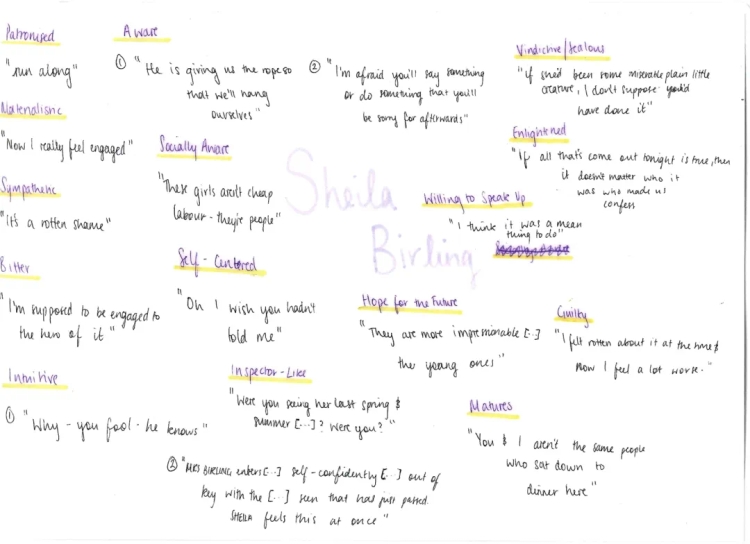 Patronised
"run along"
Materialistic
"Now I really feel engaged"
Sympathetic
"It's a rotten shame"
Bitter
"I'm supposed to be engaged to
the hero of it"
Intuitive
① "Why - you fool - he knows"
Aware
① "He is giving us the rope so
that we'll hang
ourselves"
② "I'm afraid you'll say something
or do something that you'll
be sorry for afterwards"
Socially Aware
"These girls aren't cheap
labour - they're people"
Self-Centered
"Oh I wish you hadn't
told me"
Inspector-Like
"Were you seeing her last spring &
summer [...]? Were you?"
② "MRS BIRLING enters [...] self-confidently [...] out of
key with the [...] scene that has just passed.
SHEILA feels this at once"
Sheila
Birling
Vindictive/Jealous
"if she'd been some miserable plain little
creature, I don't suppose you'd
have done it"
Enlightened
"If all that's come out tonight is true, then
it doesn't matter who it
was who made us
confess
Willing to Speak Up
"I think it was a mean
thing to do"
Hope for the Future
"They are more impressionable [...]
the young ones"
Guilty
"I felt rotten about it at the time &
now I feel a lot worse."
Matures
"You & I aren't the same people
who sat down to
dinner here"